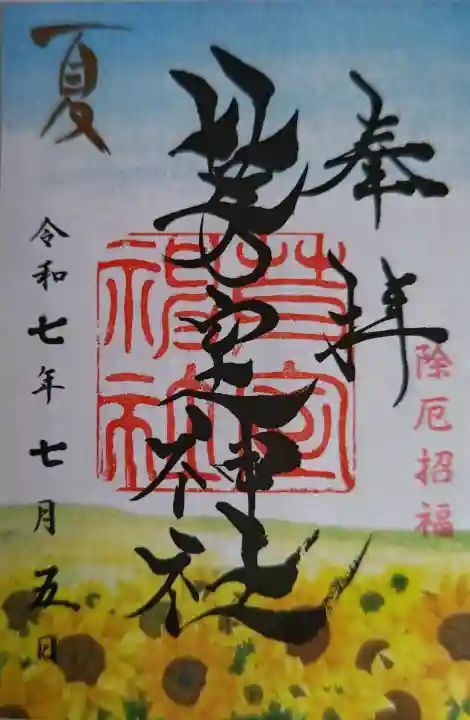 奉拝
除厄招福
宮神社
神社
夏
令和七年七月五日